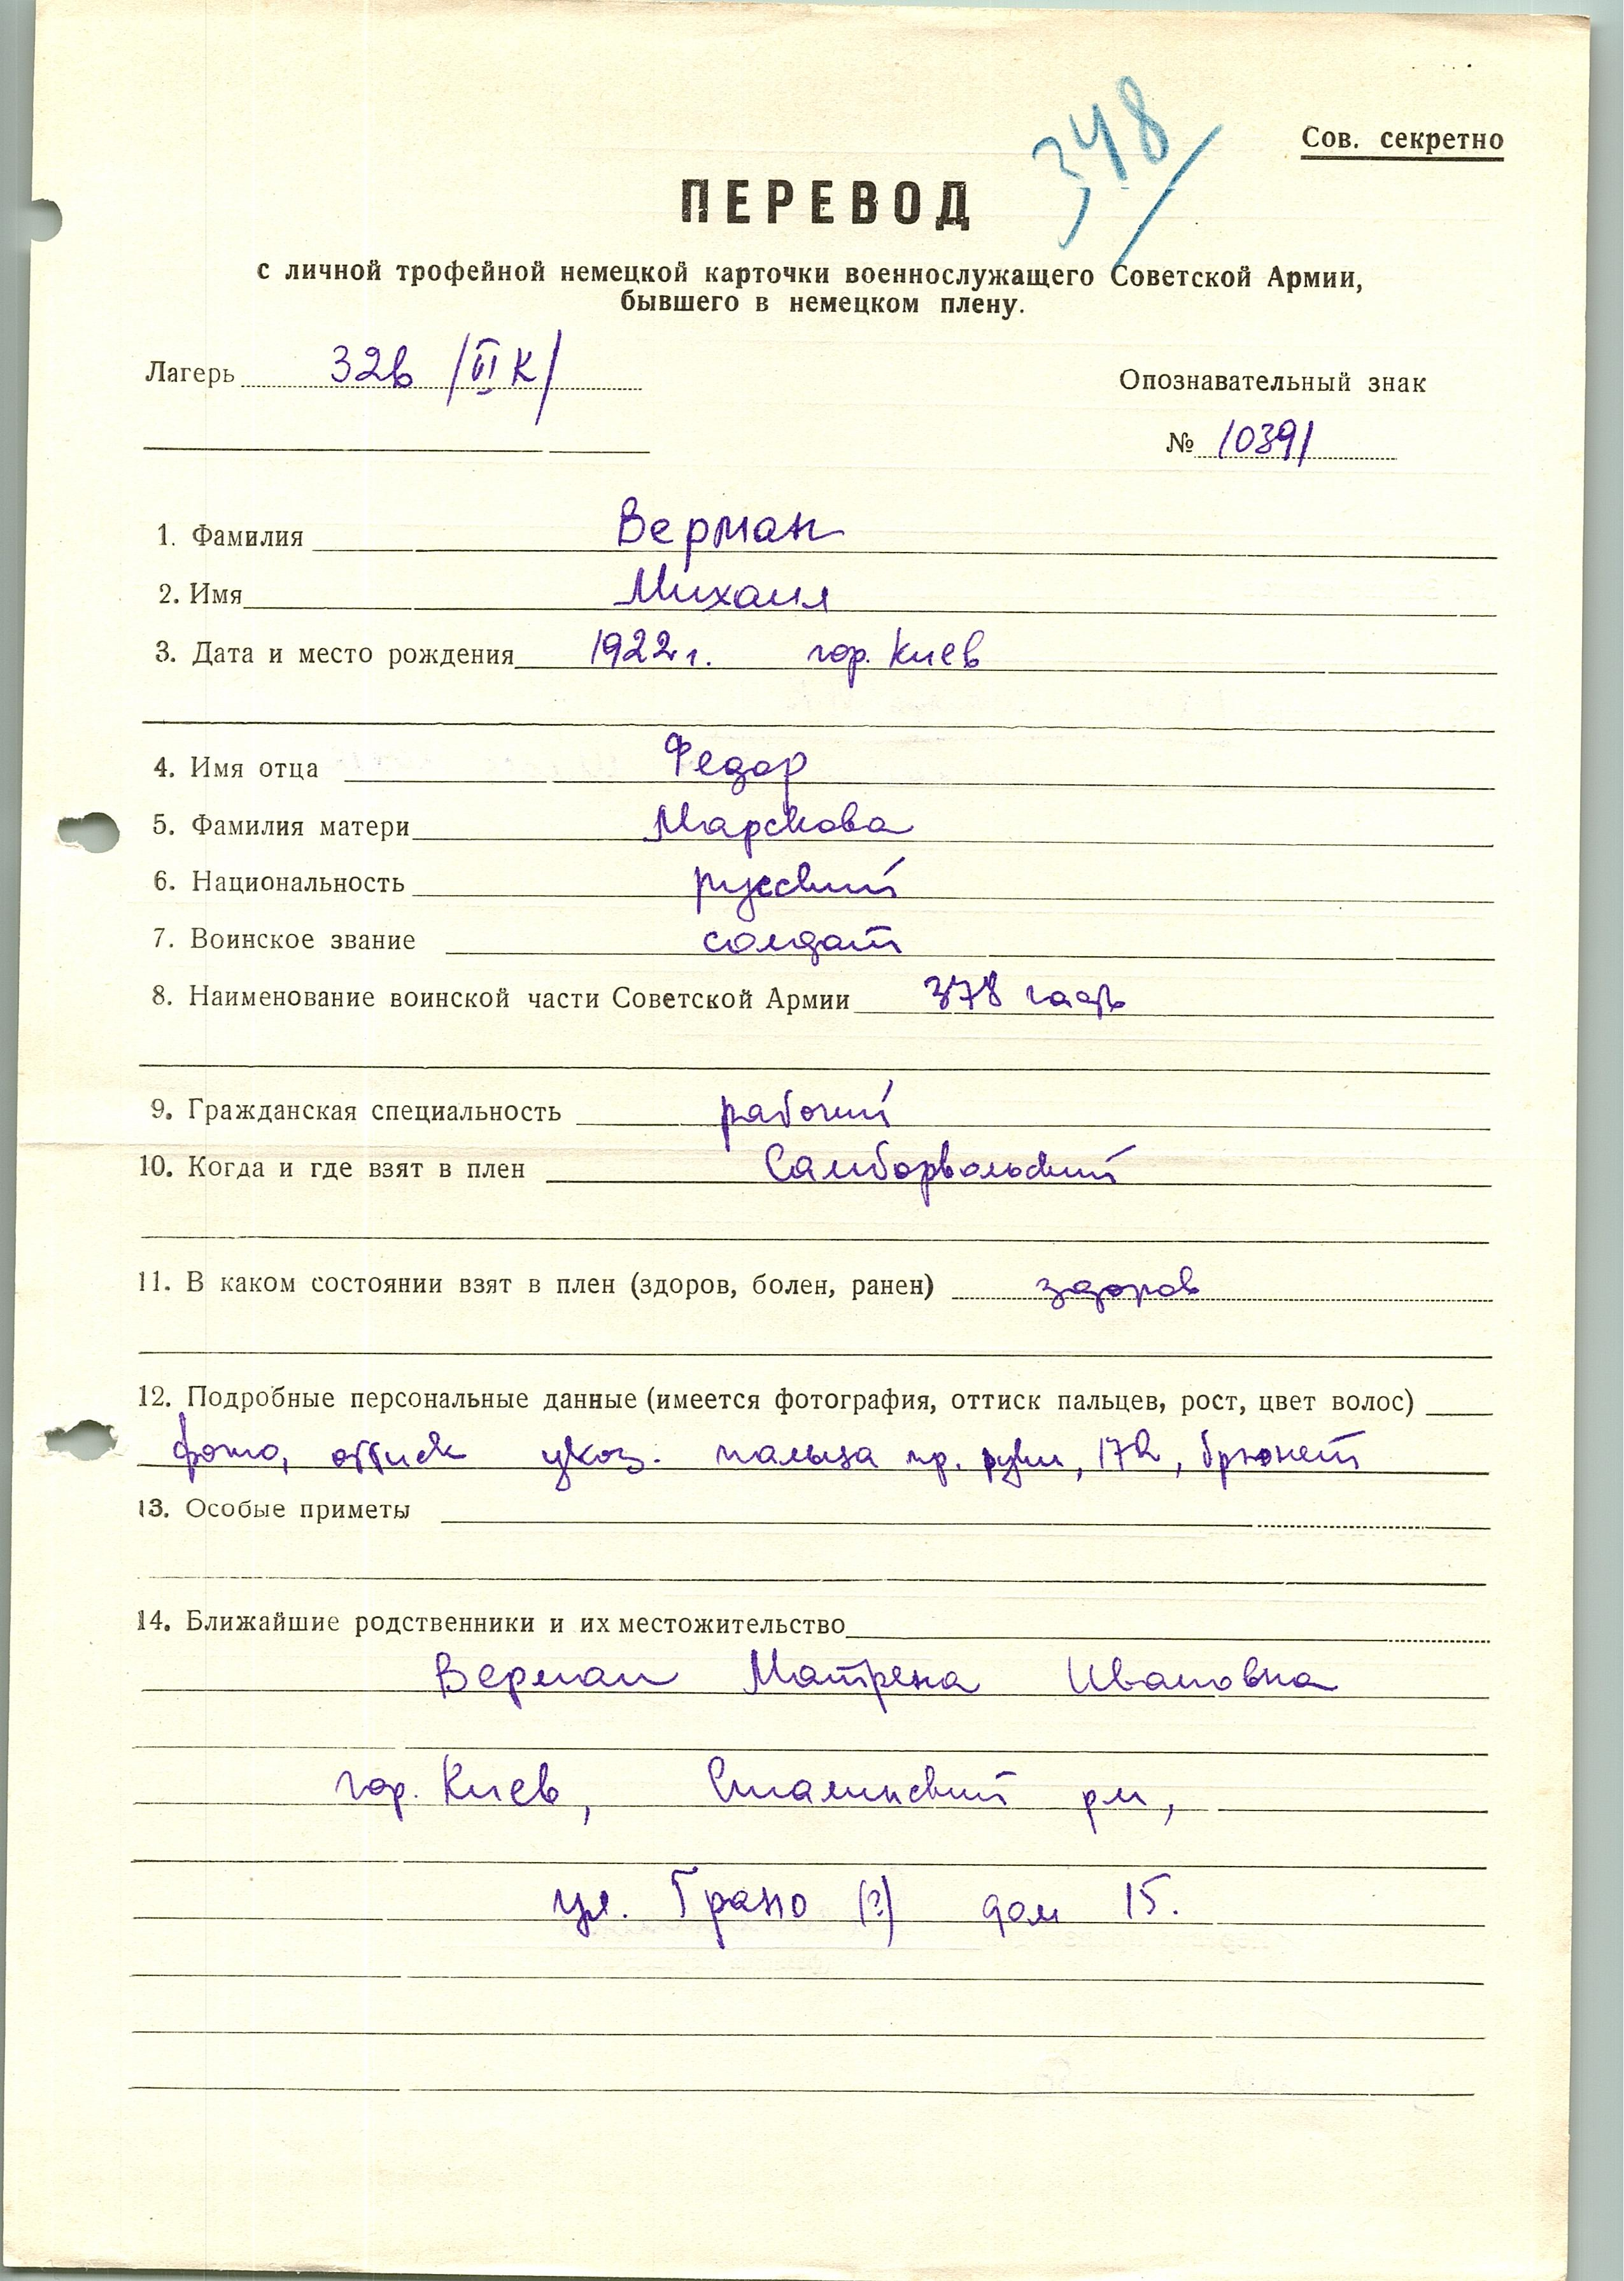 348/
Сов. секретно
ПЕРЕВОД
с личной трофейной немецкой карточки военнослужащего Советской Армии,
бывшего в немецком плену.
Лагерь 326 /VI К/
Опознавательный знак
№ 10391
1. Фамилия Верман
2. Имя Михаил
3. Дата и место рождения 1922 г. гор. Киев
4. Имя отца Федор
5. Фамилия матери
6. Национальность русский
7. Воинское звание солдат
8. Наименование воинской части Советской Армии 378 гап
9. Гражданская специальность рабочий
10. Когда и где взят в плен
11. В каком состоянии взят в плен (здоров, болен, ранен) здоров
12. Подробные персональные данные (имеется фотография, оттиск пальцев, рост, цвет волос)
фото, оттиск указ. пальца пр. руки, 172, брюнет
13. Особые приметы
14. Ближайшие родственники и их местожительство
Верман Матрена Ивановна
гор. Киев, Сталинский рн,
ул. Грано (?) дом 15.